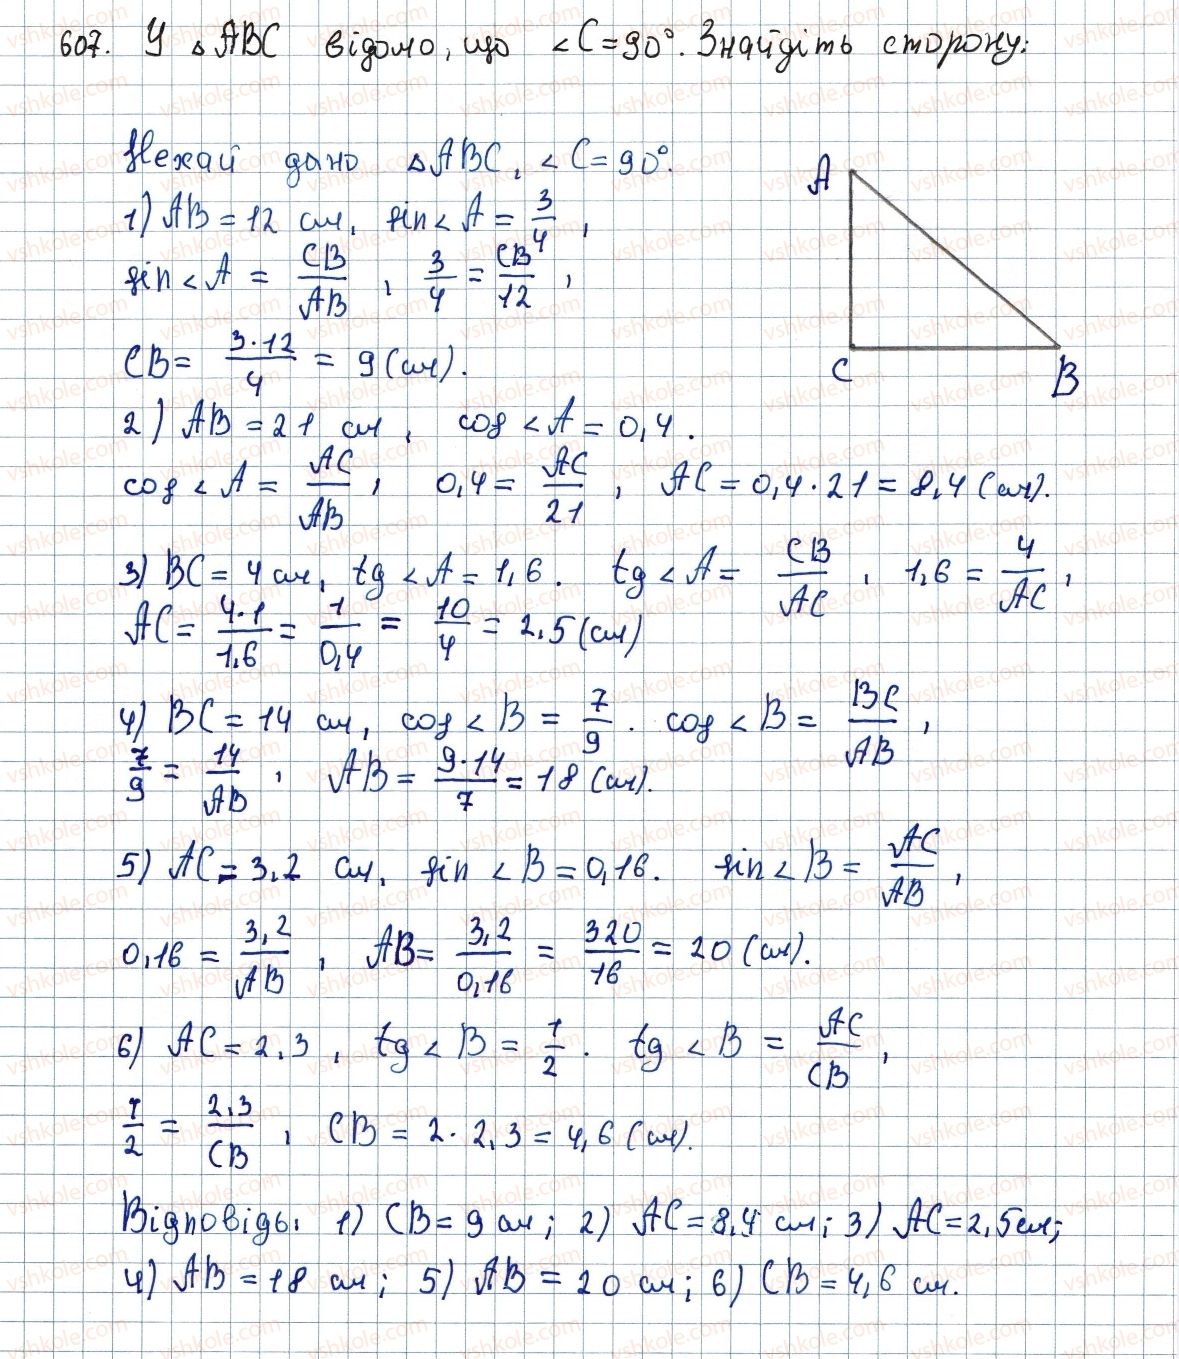 607. У △ABC відомо, що ∠C=90°. Знайдіть сторону:
Нехай дано △ABC, ∠C=90°.
1) AB=12 см, sin∠A = 3/4,
sin∠A = CB/AB, 3/4 = CB/12,
CB = 3·12/4 = 9 (см).
2) AB=21 см, cos∠A=0,4.
cos∠A = AC/AB, 0,4 = AC/21, AC=0,4·21=8,4 (см).
3) BC=4 см, tg∠A=1,6. tg∠A = CB/AC, 1,6 = 4/AC,
AC = 4·1/1,6 = 1/0,4 = 10/4 = 2,5 (см)
4) BC=14 см, cos∠B = 7/9. cos∠B = BC/AB,
7/9 = 14/AB, AB = 9·14/7 = 18 (см).
5) AC=3,2 см, sin∠B=0,16. sin∠B = AC/AB,
0,16 = 3,2/AB, AB = 3,2/0,16 = 320/16 = 20 (см).
6) AC=2,3, tg∠B = 1/2. tg∠B = AC/CB,
1/2 = 2,3/CB, CB = 2·2,3=4,6 (см).
Відповідь: 1) CB=9 см; 2) AC=8,4 см; 3) AC=2,5см;
4) AB=18 см; 5) AB=20 см; 6) CB=4,6 см.
A
C
B
vshkole.com